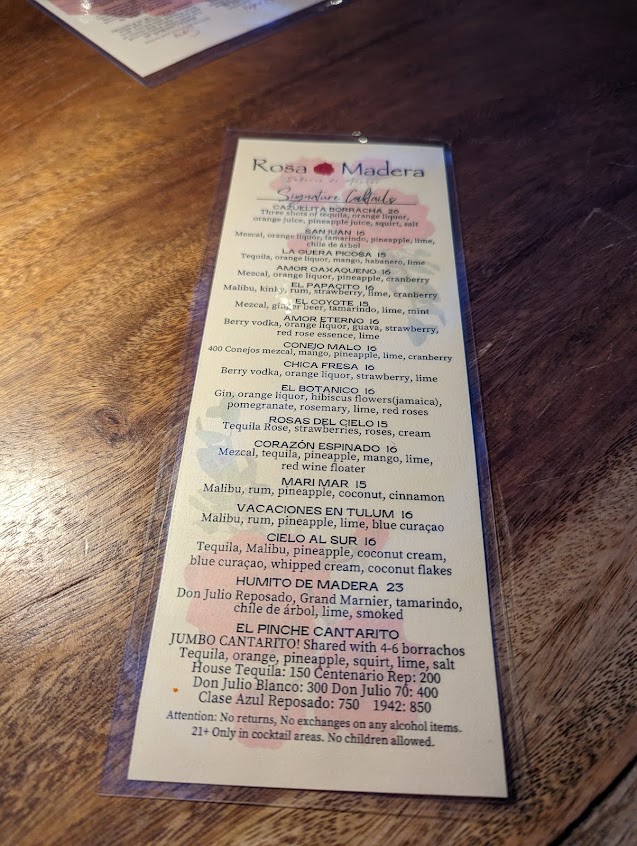 Rosa Madera
Signature Cocktails
CAZUELITA BORRACHA 26
Three shots of tequila, orange liquor,
orange juice, pineapple juice, squirt, salt
SAN JUAN 16
Mezcal, orange liquor, tamarindo, pineapple, lime,
chile de árbol
LA GUERA PICOSA 15
Tequila, orange liquor, mango, habanero, lime
AMOR OAXAQUENO 16
Mezcal, orange liquor, pineapple, cranberry
EL PAPACITO 16
Malibu, kinky, rum, strawberry, lime, cranberry
EL COYOTE 15
Mezcal, ginger beer, tamarindo, lime, mint
AMOR ETERNO 16
Berry vodka, orange liquor, guava, strawberry,
red rose essence, lime
CONEJO MALO 16
400 Conejos mezcal, mango, pineapple, lime, cranberry
CHICA FRESA 16
Berry vodka, orange liquor, strawberry, lime
EL BOTANICO 16
Gin, orange liquor, hibiscus flowers(jamaica),
pomegranate, rosemary, lime, red roses
ROSAS DEL CIELO 15
Tequila Rose, strawberries, roses, cream
CORAZÓN ESPINADO 16
Mezcal, tequila, pineapple, mango, lime,
red wine floater
MARI MAR 15
Malibu, rum, pineapple, coconut, cinnamon
VACACIONES EN TULUM 16
Malibu, rum, pineapple, lime, blue curaçao
CIELO AL SUR 16
Tequila, Malibu, pineapple, coconut cream,
blue curaçao, whipped cream, coconut flakes
HUMITO DE MADERA 23
Don Julio Reposado, Grand Marnier, tamarindo,
chile de árbol, lime, smoked
EL PINCHE CANTARITO
JUMBO CANTARITO! Shared with 4-6 borrachos
Tequila, orange, pineapple, squirt, lime, salt
House Tequila: 150 Centenario Rep: 200
Don Julio Blanco: 300 Don Julio 70: 400
Clase Azul Reposado: 750 1942: 850
Attention: No returns, No exchanges on any alcohol items.
21+ Only in cocktail areas. No children allowed.